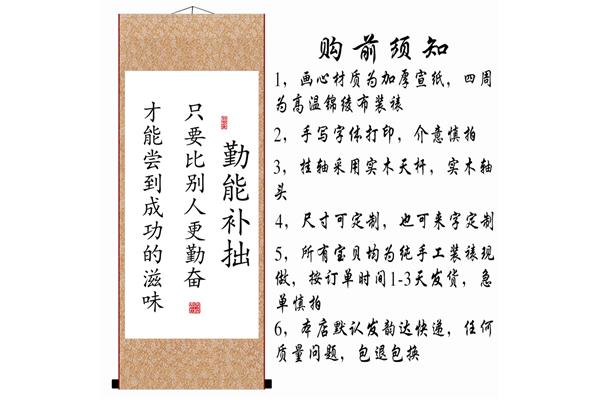 勤能补拙
只要比别人更勤奋
才能尝到成功的滋味
购前须知
1，画心材质为加厚宣纸，四周
为高温锦绫布装裱
2，手写字体打印，介意慎拍
3，挂轴采用实木天杆，实木轴
头
4，尺寸可定制，也可来字定制
5，所有宝贝均为纯手工装裱现
做，按订单时间1-3天发货，急
单慎拍
6，本店默认发韵达快递，任何
质量问题，包退包换